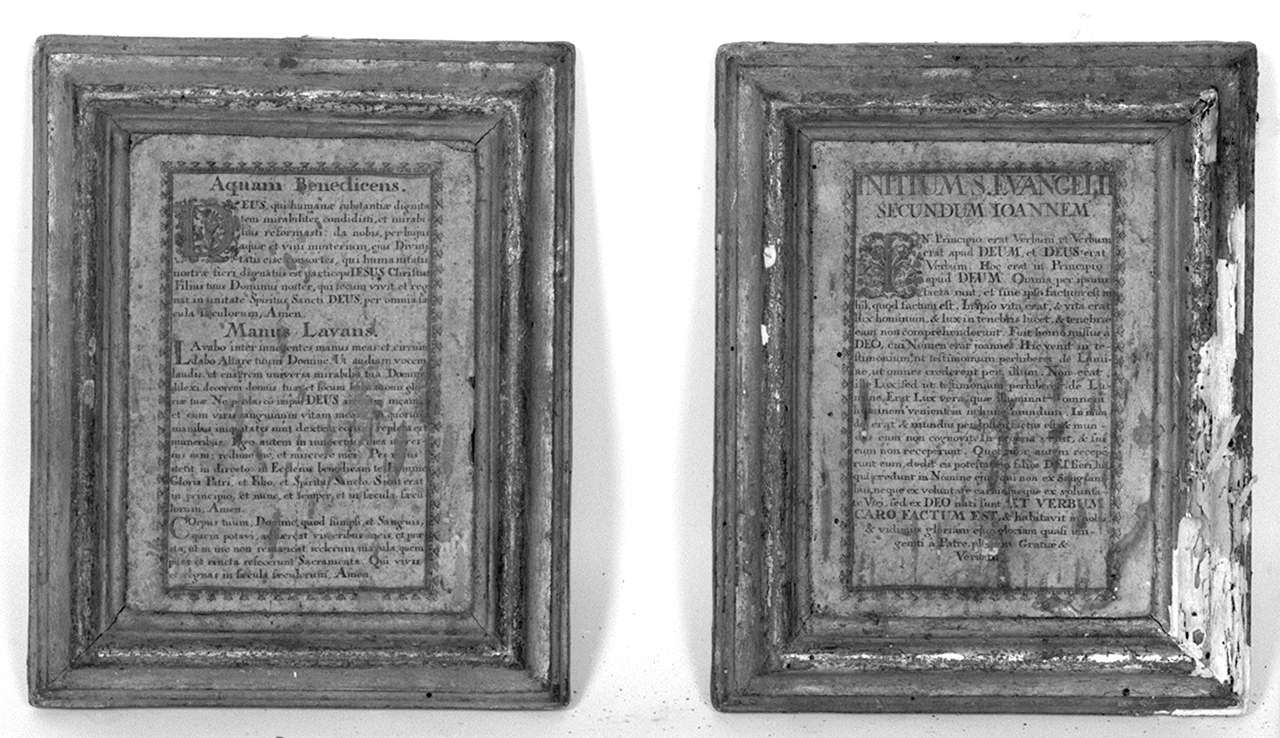 Aquam Benedicens.
DEUS, qui humanæ substantiæ dignita
tem mirabiliter condidisti, et mirabi
lius reformasti: da nobis, per hujus
aquæ et vini misterium, ejus Divini
tatis esse consortes, qui humanitatis
nostræ fieri dignatus est particeps JESUS Christus
Filius tuus Dominus noster, qui tecum vivit et reg
nat in unitate Spiritus Sancti DEUS, per omnia sæ
cula sæculorum, Amen.
Manus Lavans.
LAvabo inter innocentes manus meas: et circum
dabo Altare tuum Domine. Ut audiam vocem
laudis: et enarrem universa mirabilia tua. Domine
dilexi decorem domus tuæ: et locum habitationis glo
riæ tuæ. Ne perdas cū impiis DEUS animam meam:
et cum viris sanguinum vitam meam. In quorum
manibus iniquitates sunt: dextera eorum repleta est
muneribus. Ego autem in innocentia mea ingres
sus sum: redime me, et miserere mei. Pes meus
stetit in directo: in Ecclesiis benedicam te Domine
Gloria Patri, et Filio, et Spiritui Sancto. Sicut erat
in principio, et nunc, et semper, et in sæcula sæcu
lorum, Amen.
COrpus tuum, Domine, quod sumpsi, et Sanguis,
quem potavi, adhæreat visceribus meis: et præs
ta, ut in me non remaneat scelerum macula, quem
pura et sancta refecerunt Sacramenta. Qui vivis
et regnas in sæcula sæculorum, Amen.
INITIUM S. EVANGELII
SECUNDUM IOANNEM
IN Principio erat Verbum et Verbum
erat apud DEUM, et DEUS erat
Verbum. Hoc erat in Principio
apud DEUM. Omnia per ipsum
facta sunt, et sine ipso factum est ni
hil, quod factum est. In ipso vita erat, & vita erat
lux hominum, & lux in tenebris lucet, & tenebræ
eam non comprehenderunt. Fuit homo missus a
DEO, cui Nomen erat joannes. Hic venit in te-
stimonium, ut testimonium perhiberet de Lumi
ne, ut omnes crederent per illum. Non erat
ille Lux, sed ut testimonium perhiberet de Lu
mine. Erat Lux vera, quæ illuminat omnem
hominem venientem in hunc mundum. In mun
do erat & mundus per ipsum factus est, & mun-
dus eum non cognovit. In propria venit, & sui
eum non receperunt. Quotquot autem recepe
runt eum, dedit eis potestatem filios DEI fieri, his
qui credunt in Nomine ejus, qui non ex Sanguini
bus, neque ex voluntate carnis, neque ex volunta-
te Viri, sed ex DEO nati sunt. ET VERBUM
CARO FACTUM EST, & habitavit in nobis
& vidimus gloriam ejus, gloriam quasi uni-
geniti à Patre, plenum Gratiæ &